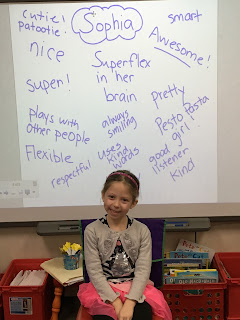 cutie!
patootie!
Sophia
smart
Awesome!
nice
Superflex
in her
brain
super!
pretty
plays with
other people
always
smiling
Pesto Pasta
girl
Flexible
uses
kind
words
good
listener
respectful
kind